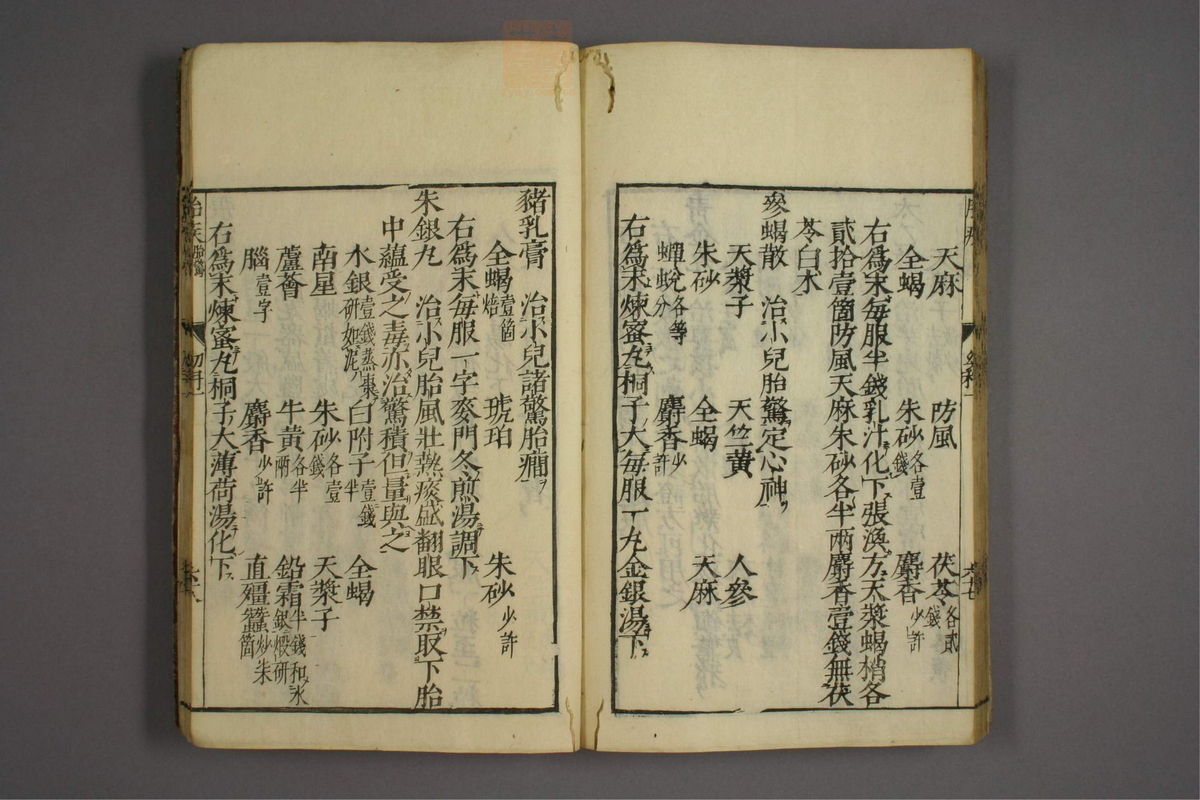 天麻 防風 茯苓各貳錢
全蝎 朱砂各壹錢 麝香少許
右爲末每服半錢乳汁化下張渙方天漿蝎梢各
貳拾壹箇防風天麻朱砂各半兩麝香壹錢無茯
苓白朮
參蝎散 治小兒胎驚定心神
天漿子 天竺黄 人參
朱砂 全蝎 天麻
蟬蛻各等分 麝香少許
右爲末煉蜜丸桐子大每服一丸金銀湯下
豬乳膏 治小兒諸驚胎癇
全蝎壹箇焙 琥珀 朱砂少許
右爲末每服一字麥門冬煎湯調下
朱銀丸 治小兒胎風壯熱痰盛翻眼口禁取下胎
中蘊受之毒亦治驚積但量與之
水銀壹錢蒸棗研如泥 白附子壹錢半 全蝎
南星 朱砂各壹錢 天漿子
蘆薈 牛黄各半兩 鉛霜半錢和水銀煅研
腦壹字 麝香少許 直殭蠶炒朱箇
右爲末煉蜜丸桐子大薄荷湯化下